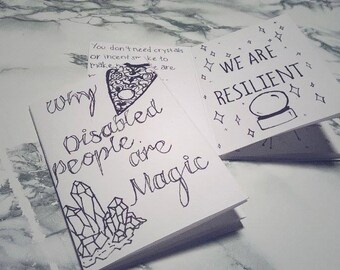 You don't need crystals
or incense like to
make
are
Why
Disabled
people
are
Magic
WE ARE
RESILIENT